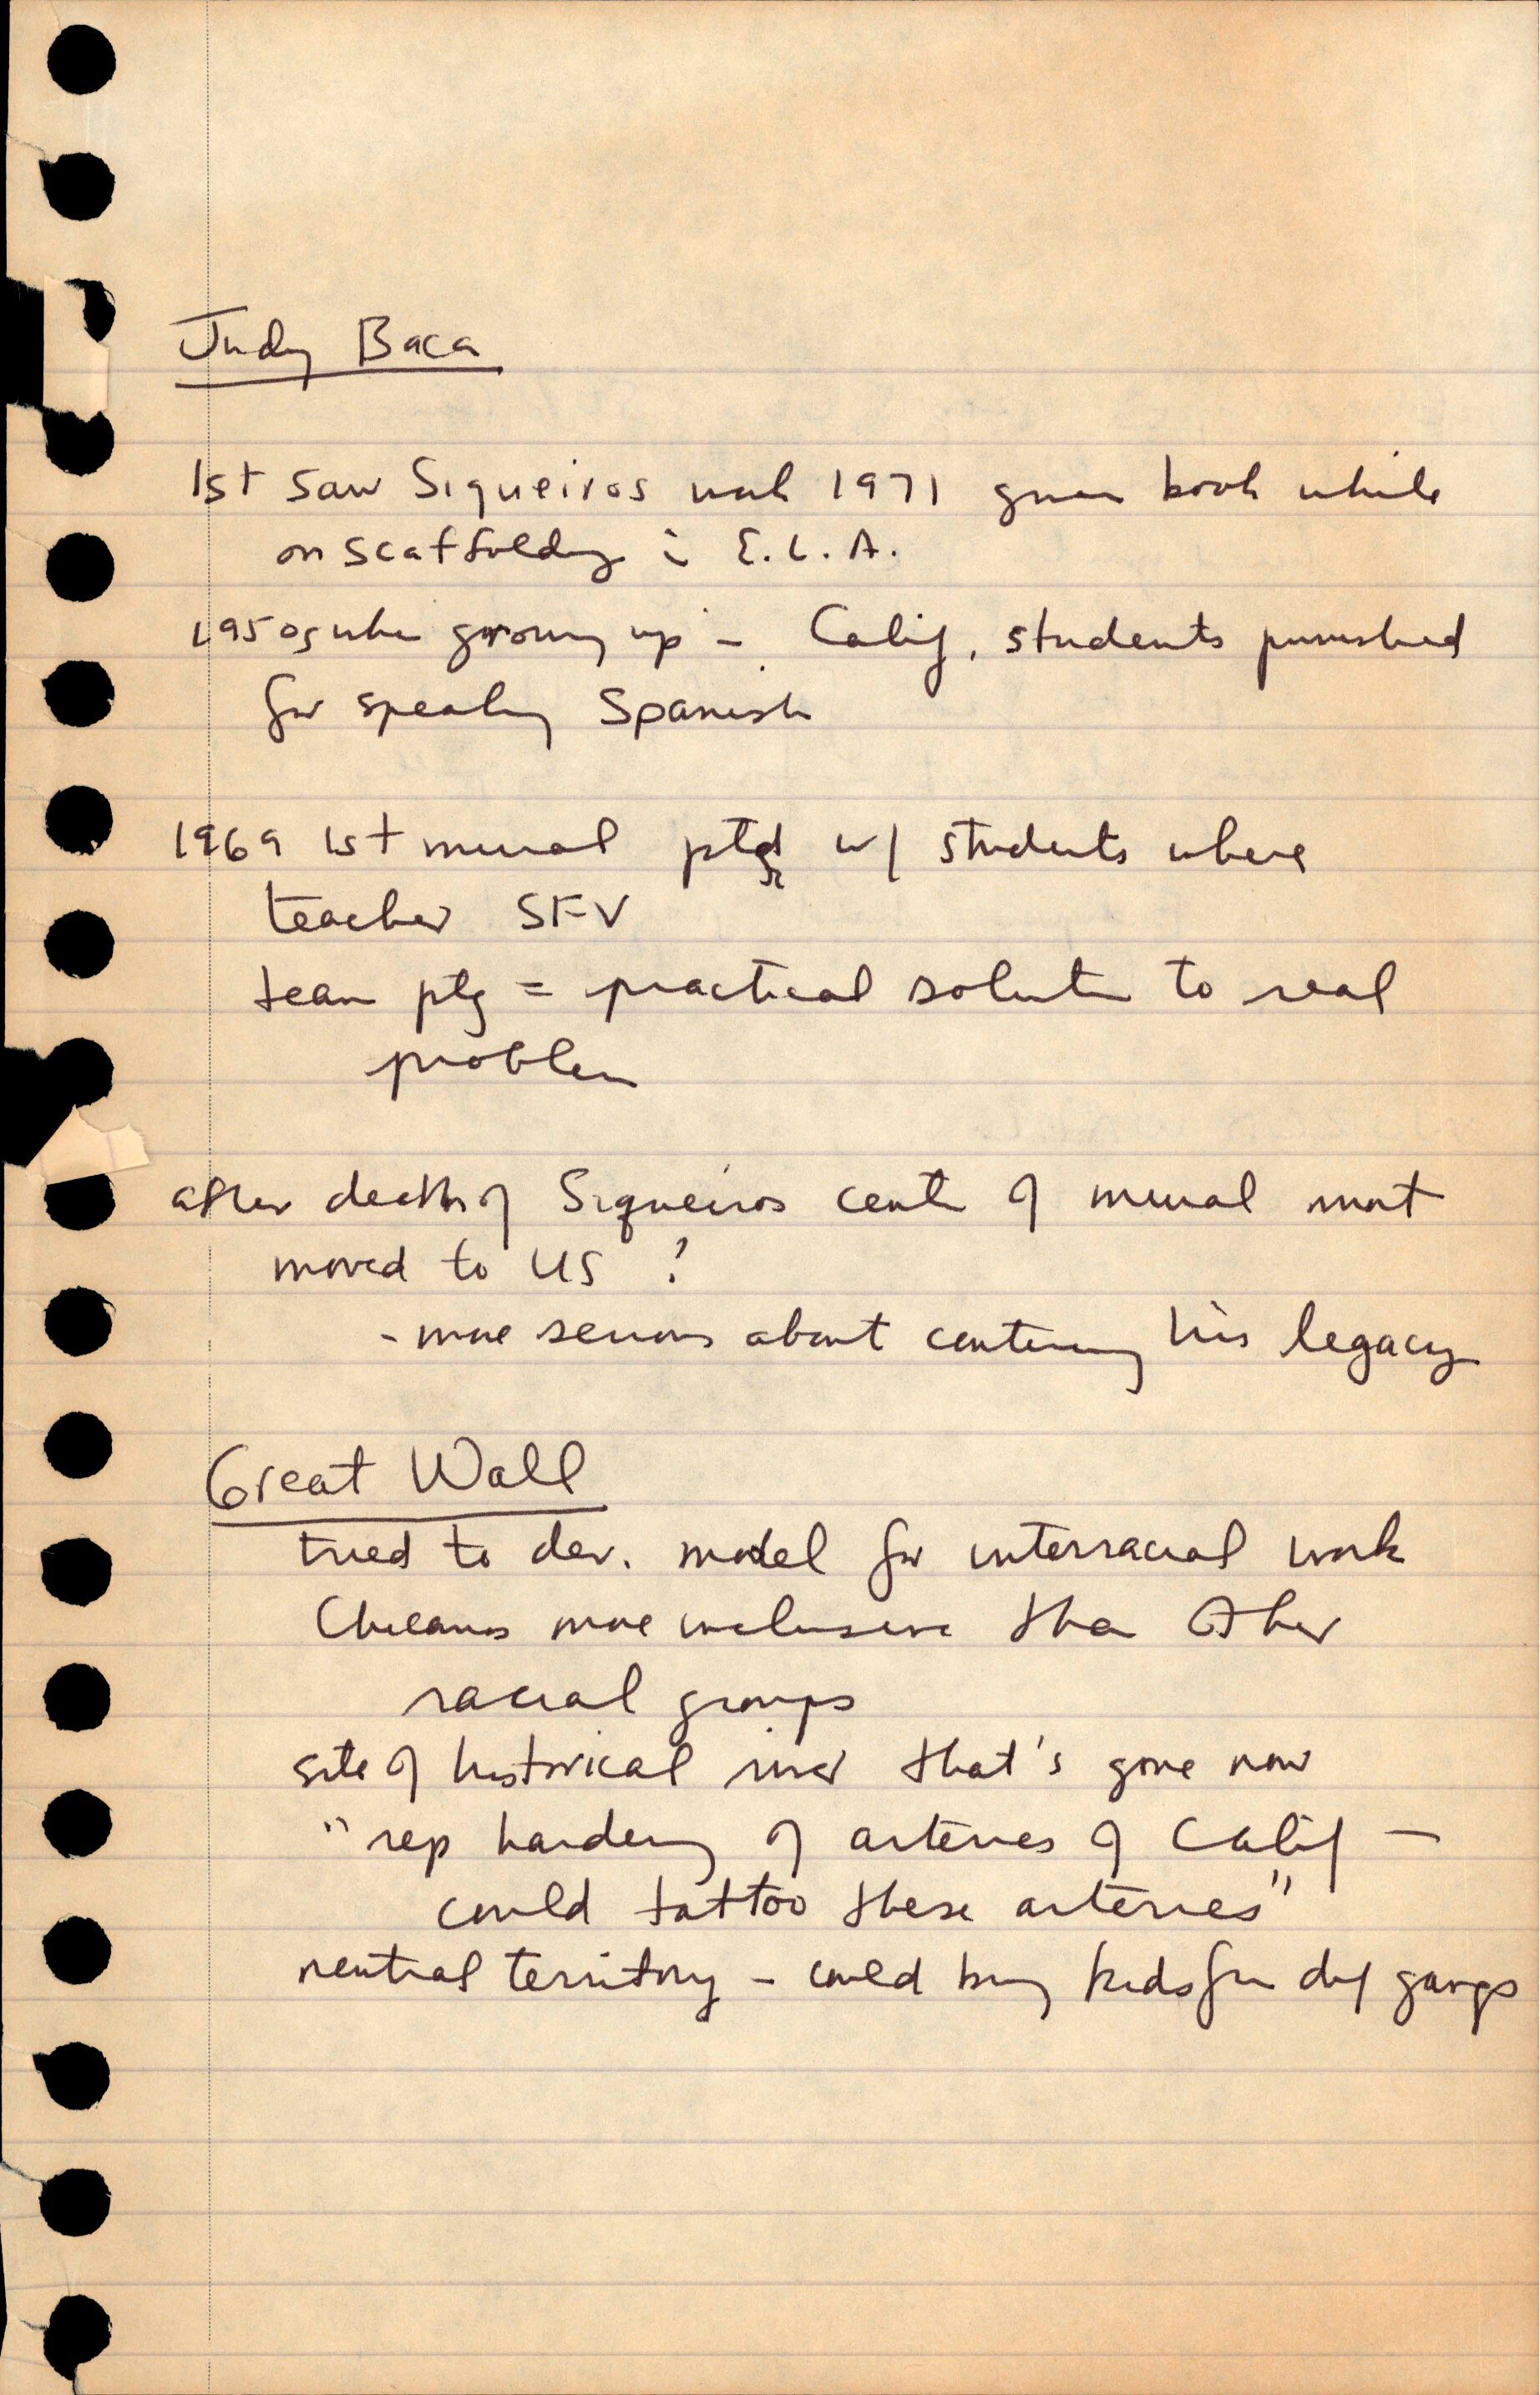 Judy Baca
1st saw Siqueiros work 1971 given book while
on scaffolding in E.L.A.
1950s when growing up - Calif. students punished
for speaking Spanish
1969 1st mural ptd w/ students where
teacher SFV
team ptg = practical solution to real
problem
after death of Siqueiros center of mural mvt
moved to US ?
- more serious about continuing his legacy
Great Wall
tried to dev. model for interracial work
Chicanos more inclusive than other
racial groups
site of historical river that's gone now
"rep hardening of arteries of Calif -
could tattoo these arteries"
neutral territory - could bring kids from dif gangs